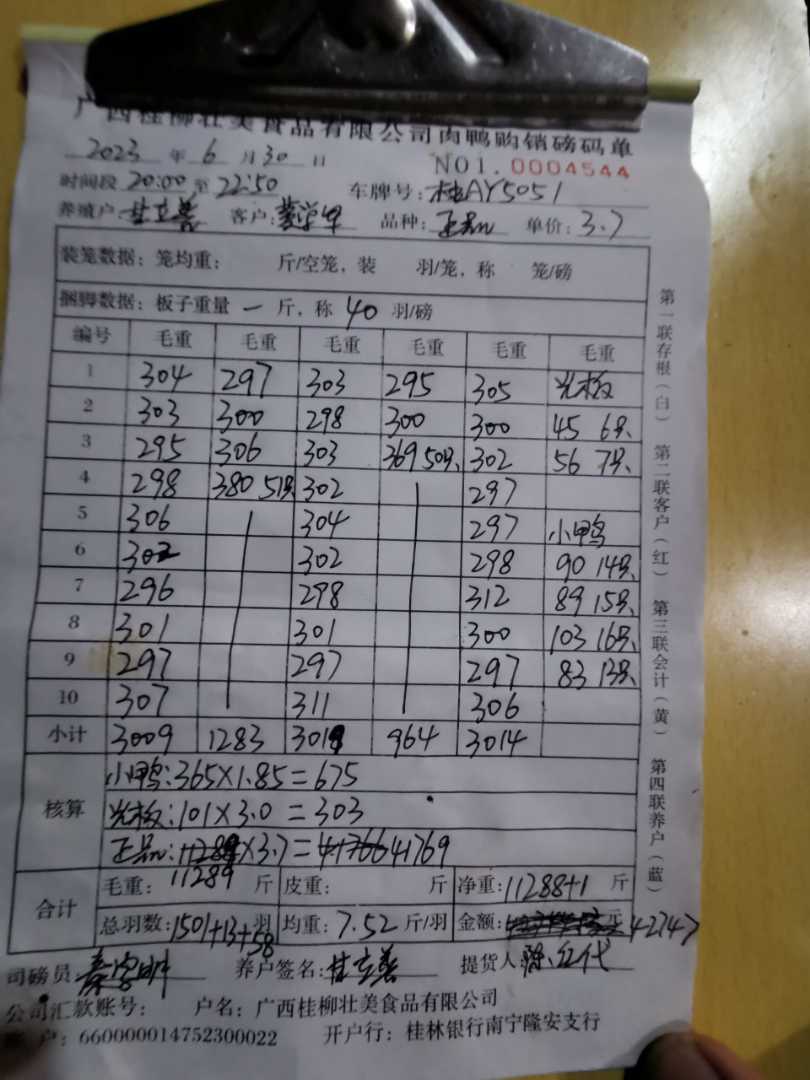 广西桂柳壮美食品有限公司肉鸭购销磅码单
2023 年 6 月 30 日 NO1.0004544
时间段 20:00 至 22:50 车牌号: 桂AY5051
养殖户: 甘立善 客户: 品种: 正品 单价: 3.7
装笼数据: 笼均重: 斤/空笼, 装 羽/笼, 称 笼/磅
捆脚数据: 板子重量 一 斤, 称 40 羽/磅
编号 毛重 毛重 毛重 毛重 毛重 毛重
1 304 297 303 295 305 光板
2 303 300 298 300 300 45 6只
3 295 306 303 369 50只 302 56 7只
4 298 380 51只 302 297
5 306 304 297 小鸭
6 302 302 298 90 14只
7 296 298 312 89 15只
8 301 301 300 103 16只
9 297 297 297 83 13只
10 307 311 306
小计 3009 1283 3019 964 3014
核算
小鸭: 365×1.85=675
光板: 101×3.0=303
正品: 11289×3.7=41766 41769
合计
毛重: 11289 斤 皮重: 斤 净重: 11288+1 斤
总羽数: 1501+13+58 羽 均重: 7.52 斤/羽 金额: 42747
司磅员 秦学明 养户签名: 甘立善 提货人: 陈红代
公司汇款账号: 户名: 广西桂柳壮美食品有限公司
账户: 660000014752300022 开户行: 桂林银行南宁隆安支行
第一联存根(白) 第二联客户(红) 第三联会计(黄) 第四联养户(蓝)